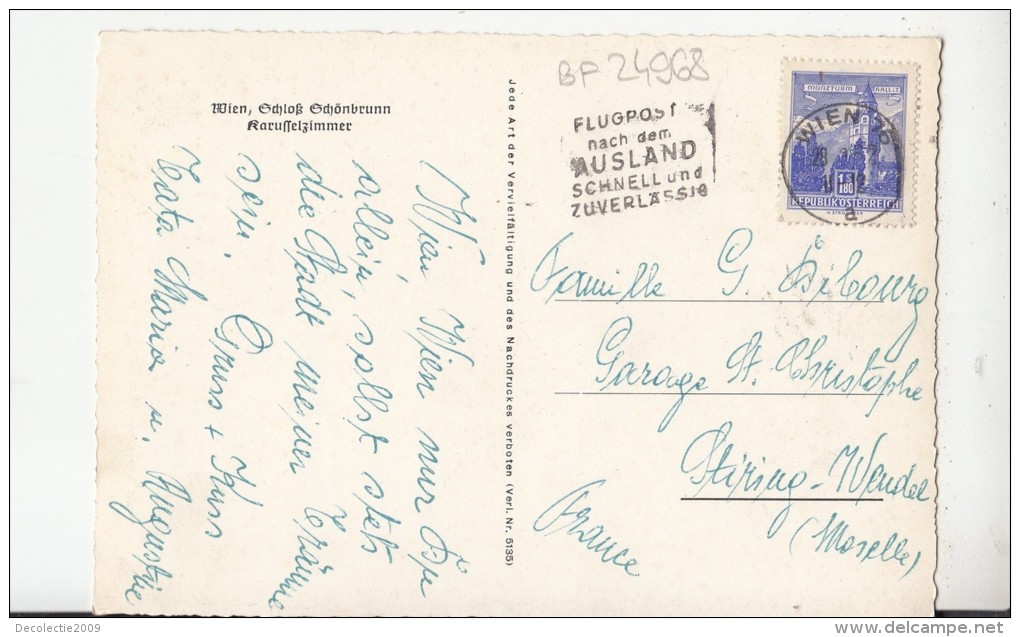 BF 24968
Wien, Schloß Schönbrunn
Karusselzimmer
FLUGPOST
nach dem
AUSLAND
SCHNELL und
ZUVERLÄSSIG
MÜNZTURM HALL I.T.
WIEN
1 S 80
REPUBLIK ÖSTERREICH
Wien, Wien nur Du
allein, sollst stets
die Stadt meiner Träume
sein.
Gruss + Kuss
Tata Maria u. Augustie
Jede Art der Vervielfältigung und des Nachdruckes verboten (Verl. Nr. 5135)
Famille G. Dibourg
Garage St. Christophe
Stiring-Wendel
(Moselle)
France
Decolectie2009
delcampe.net